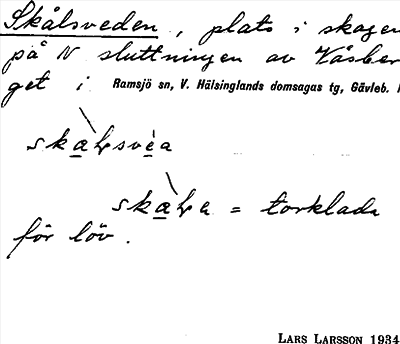 Skålsveden, plats i skogen
på N sluttningen av Våsber
get i Ramsjö sn, V. Hälsinglands domsagas tg, Gävleb. l
för löv.
= torklada
LARS LARSSON 1934